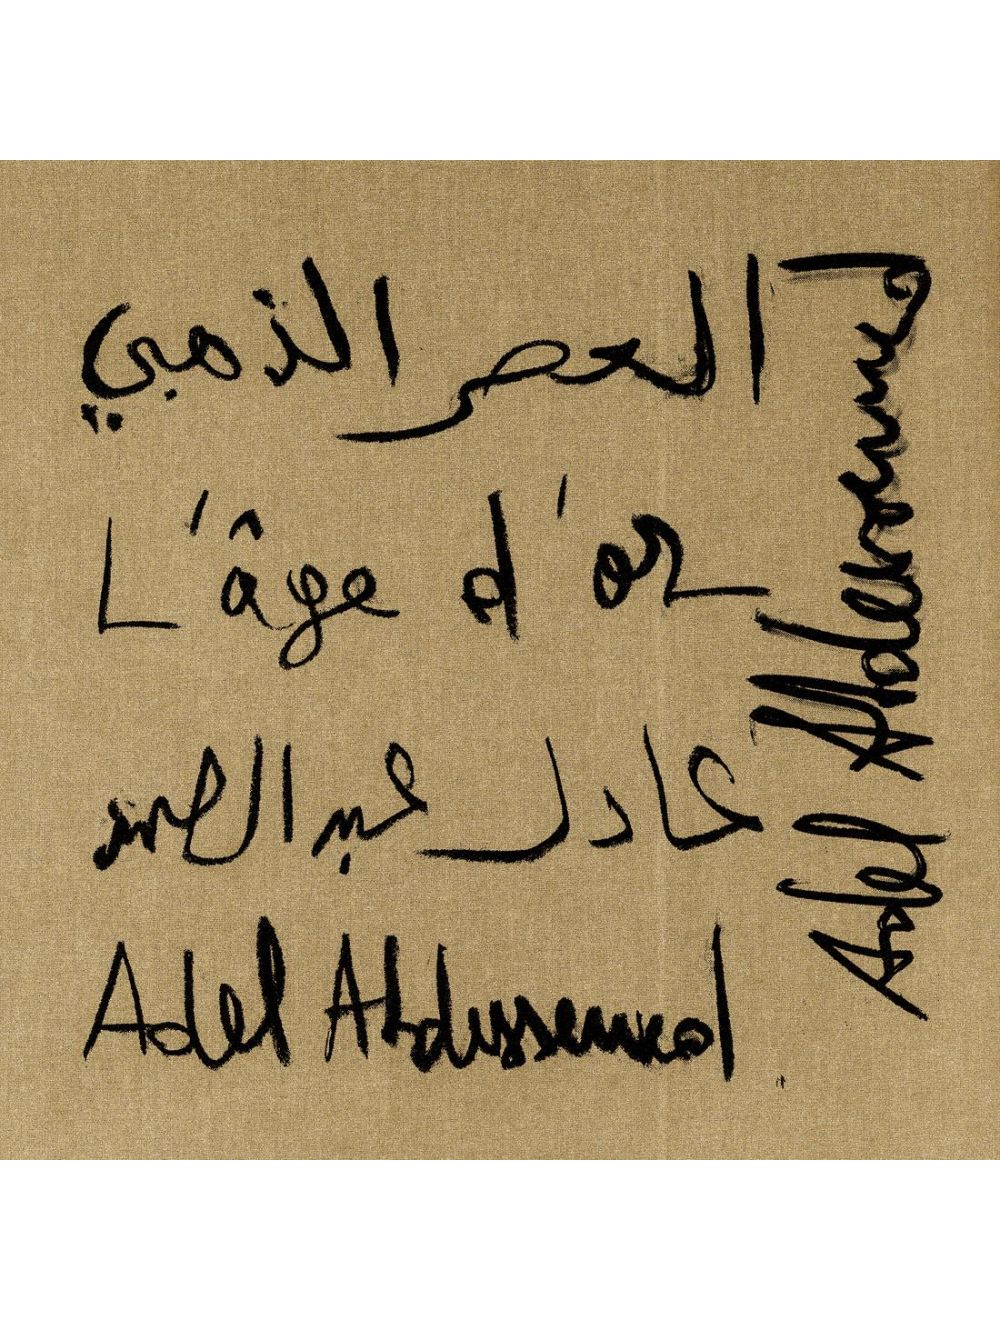 العصر الذهبي
L'âge d'or
عادل عبد الصمد
Adel Abdessemed
Adel Abdessemed